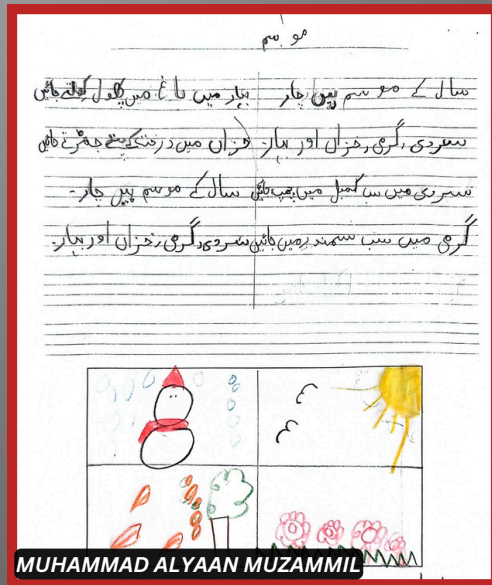 موسم
سال کے موسم ہیں چار
سردی، گرمی، خزاں اور بہار
سردی میں سب کمبل میں چھپ جائیں
گرمی میں سب سمندر میں جائیں
بہار میں باغ میں پھول کھلتے جائیں
خزاں میں درخت کے پتے جھڑتے جائیں
سال کے موسم ہیں چار۔
سردی، گرمی، خزاں اور بہار۔
MUHAMMAD ALYAAN MUZAMMIL